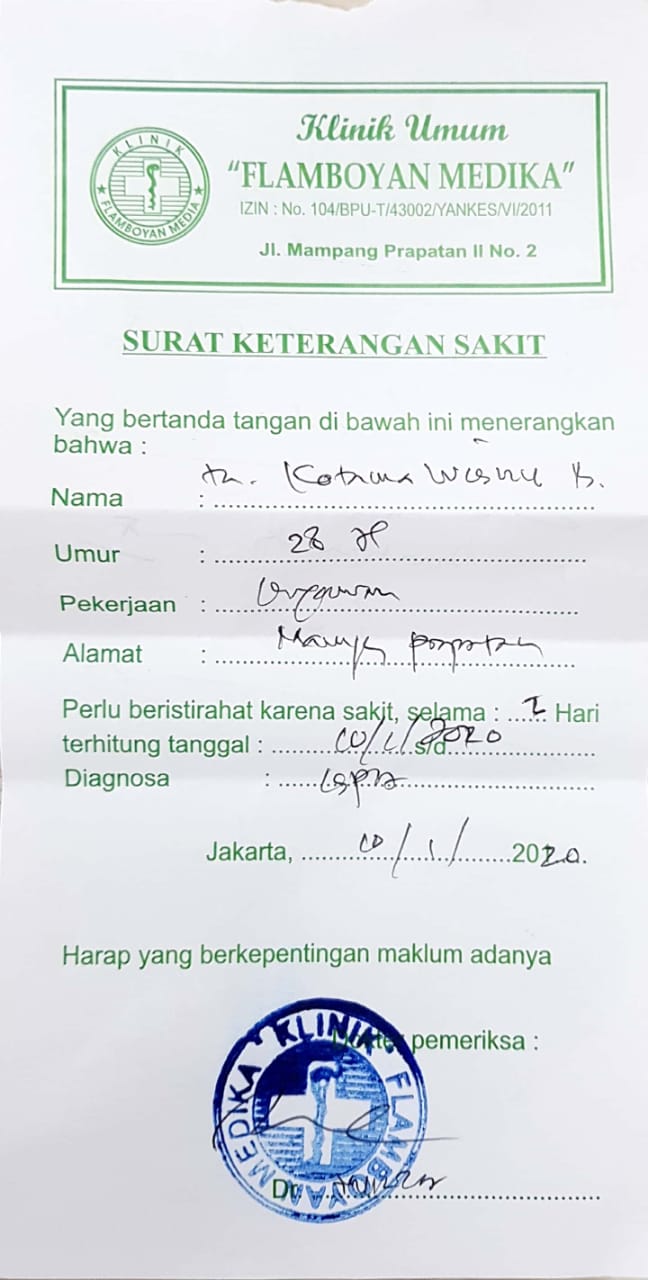 KLINIK
FLAMBOYAN MEDIA
Klinik Umum
"FLAMBOYAN MEDIKA"
IZIN : No. 104/BPU-T/43002/YANKES/VI/2011
Jl. Mampang Prapatan II No. 2
SURAT KETERANGAN SAKIT
Yang bertanda tangan di bawah ini menerangkan
bahwa :
Nama : tn. Wisnu B.
Umur : 28
Pekerjaan :
Alamat :
Perlu beristirahat karena sakit, selama : ...... Hari
terhitung tanggal : 10/1/2020 s/d
Diagnosa :
Jakarta, 10/1/2020.
Harap yang berkepentingan maklum adanya
Dokter pemeriksa :
KLINIK FLAMBOYAN MEDIKA
Dr.